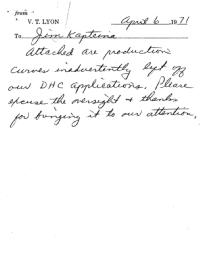 from
V. T. LYON April 6 1971
To Jim Kapteina
Attached are production
curves inadvertently left off
our DHC applications. Please
excuse the oversight & thanks
for bringing it to our attention.